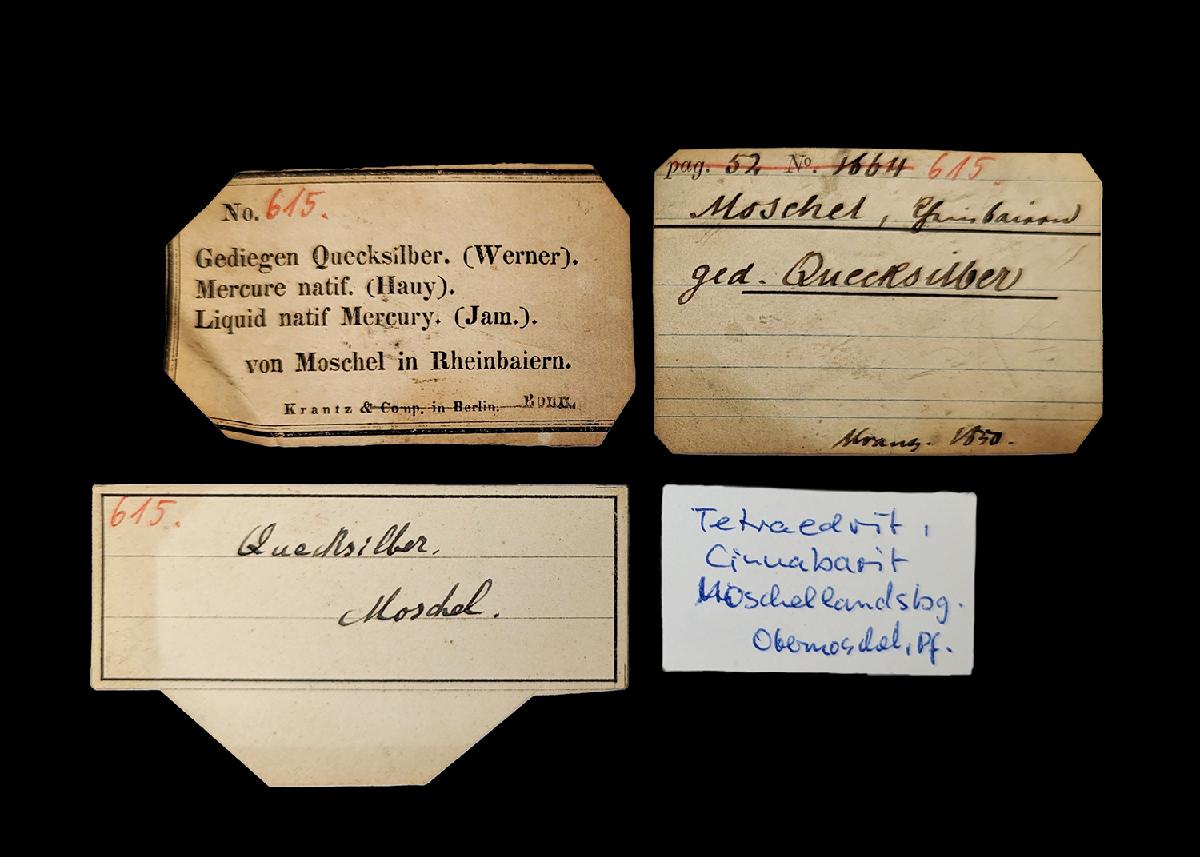 No. 615.
Gediegen Quecksilber. (Werner).
Mercure natif. (Hauy).
Liquid natif Mercury. (Jam.).
von Moschel in Rheinbaiern.
Krantz & Comp. in Berlin. Bonn.
pag. 52 No. 1664 615.
Moschel, Rheinbaiern
ged. Quecksilber
Kranz. 1850.
615.
Quecksilber.
Moschel.
Tetraedrit,
Cinnabarit
Moschellandsbg.
Obermoschel, Pf.